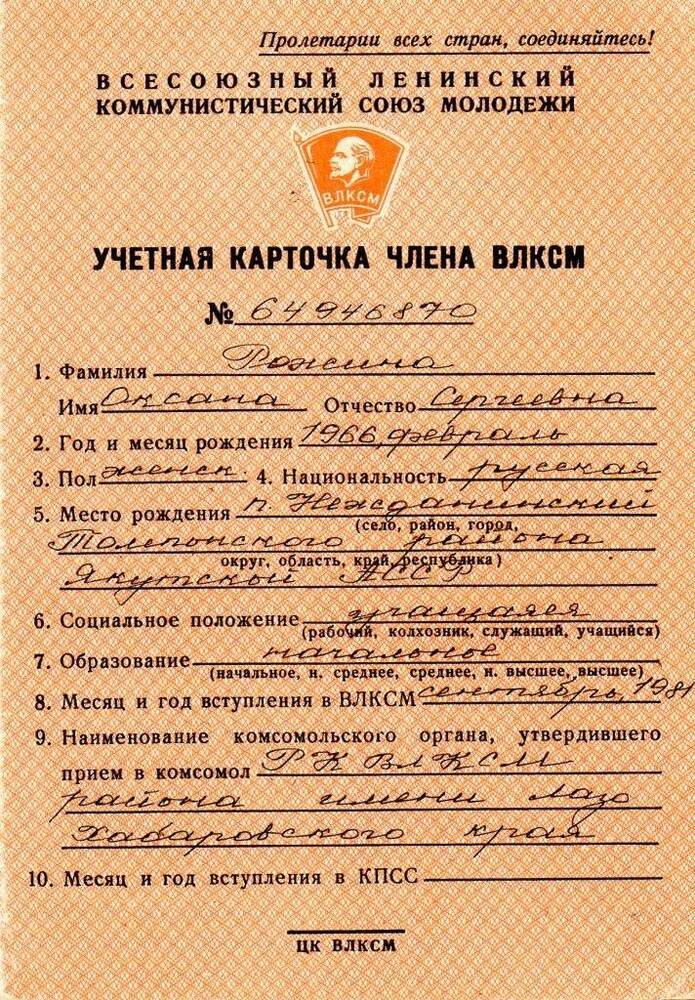 Пролетарии всех стран, соединяйтесь!
ВСЕСОЮЗНЫЙ ЛЕНИНСКИЙ
КОММУНИСТИЧЕСКИЙ СОЮЗ МОЛОДЕЖИ
ВЛКСМ
УЧЕТНАЯ КАРТОЧКА ЧЛЕНА ВЛКСМ
№ 64946870
1. Фамилия Рожина
Имя Оксана Отчество Сергеевна
2. Год и месяц рождения 1966, февраль
3. Пол женск. 4. Национальность русская
5. Место рождения п. Нежданинский
(село, район, город,
Томпонского района
округ, область, край, республика)
Якутской АССР
6. Социальное положение учащаяся
(рабочий, колхозник, служащий, учащийся)
7. Образование начальное
(начальное, н. среднее, среднее, н. высшее, высшее)
8. Месяц и год вступления в ВЛКСМ сентябрь, 1981
9. Наименование комсомольского органа, утвердившего
прием в комсомол РК ВЛКСМ
района имени Лазо
Хабаровского края
10. Месяц и год вступления в КПСС
ЦК ВЛКСМ